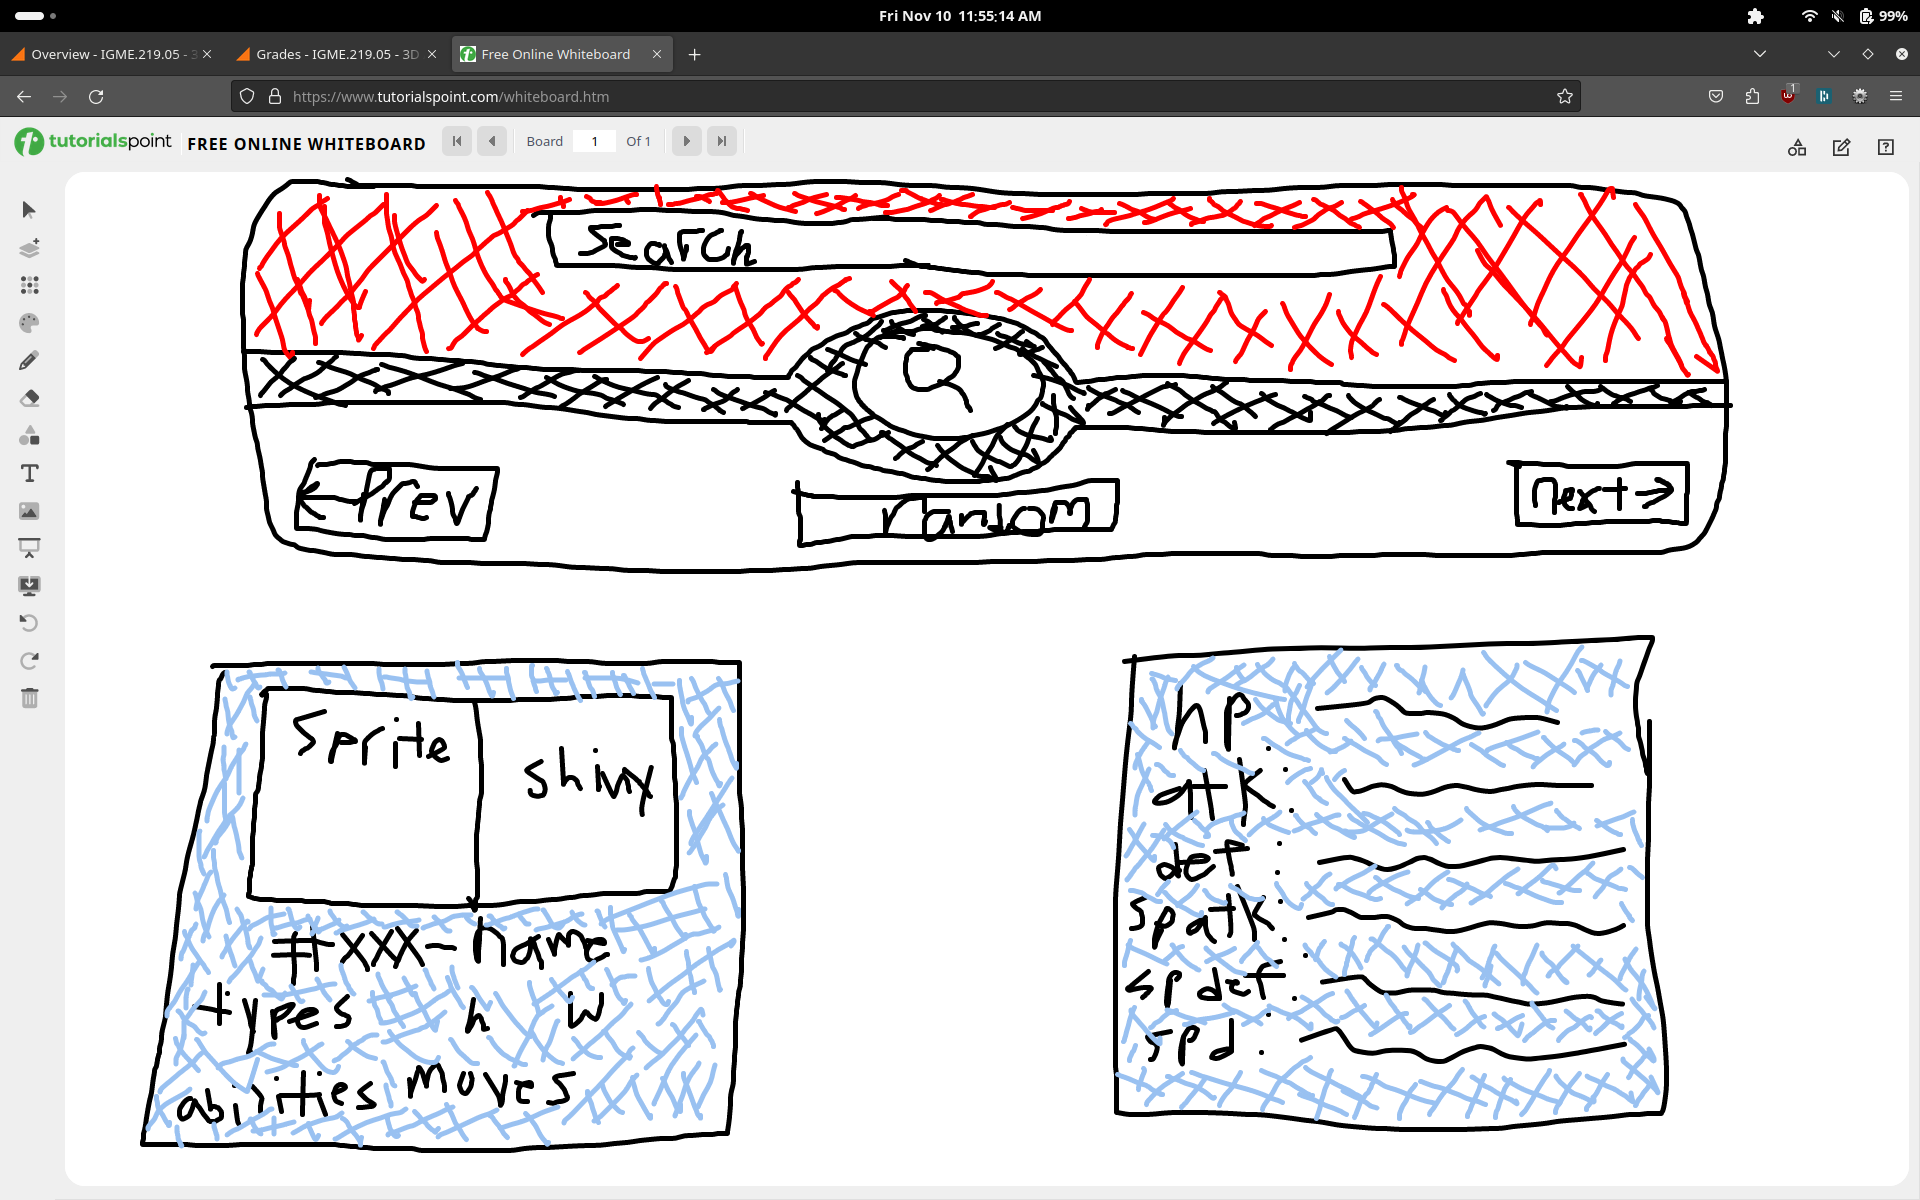 Fri Nov 10 11:55:14 AM
99%
Overview - IGME.219.05 - 3
Grades - IGME.219.05 - 3D
Free Online Whiteboard
https://www.tutorialspoint.com/whiteboard.htm
1
tutorialspoint FREE ONLINE WHITEBOARD
Board 1 Of 1
Search
← Prev
random
next →
Sprite
shiny
#xxx- name
types h w
abilities moves
hp:
atk:
def:
spatk:
spdef:
spd: